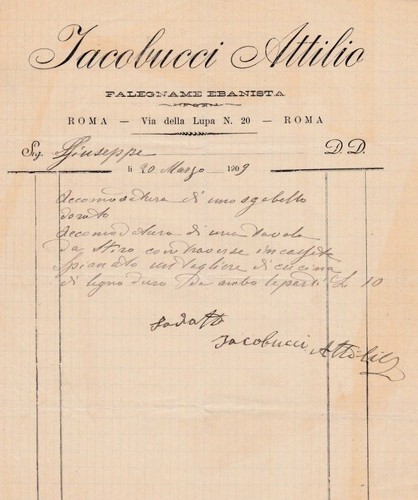 Jacobucci Attilio
FALEGNAME EBANISTA
ROMA — Via della Lupa N. 20 — ROMA
Sig. Giuseppe D. D.
li 20 Marzo 1909
Accomodatura di uno sgabello
dorato
Accomodatura di una tavola
da stiro con traverse incassate
Spianato un tagliere di cucina
di legno duro Da ambo le parti £ 10
Jacobucci Attilio